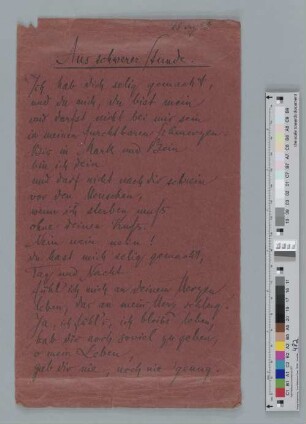 Aus schwerer Stunde
Ich hab dich selig gemacht,
und du mich, du bist mein
und darfst nicht bei mir sein
in meinen furchtbaren Schmerzen
Bis in Mark und Bein
bin ich dein
und darf nicht nach dir schrein
vor den Menschen,
wenn ich sterben muß
ohne deinen Kuß.
Nein nein nein!
du hast mich selig gemacht,
Tag und Nacht
fühl ich mich an deinem Herzen
leben, das an mein Herz schlug.
Ja, ich fühl's, ich bleibe leben,
hab dir noch soviel zu geben,
o mein Leben,
gab dir nie, noch nie genug.